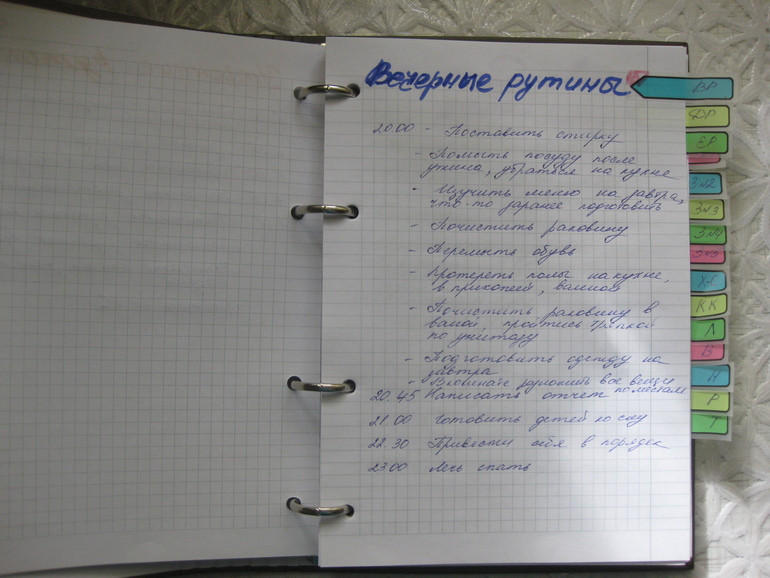 Вечерные рутины
20.00 - Поставить стирку
- Помыть посуду после
ужина, убраться на кухне
- Изучить меню на завтра,
что-то заранее подготовить
- Почистить раковину
- Перемыть обувь
- Протереть полы на кухне,
в прихожей, ванной
- Почистить раковину в
ваной, пройтись тряпкой
по унитазу
- Подготовить одежду на
завтра
- разложить все вещи
по местам
20.45 Написать отчет
21.00 Готовить детей ко сну
22.30 Привести себя в порядок
23.00 Лечь спать
ВР
ДР
ЕР
ЗN2
ЗN3
ЗN4
ЗN5
КК
Л
В
Н
Р
Т